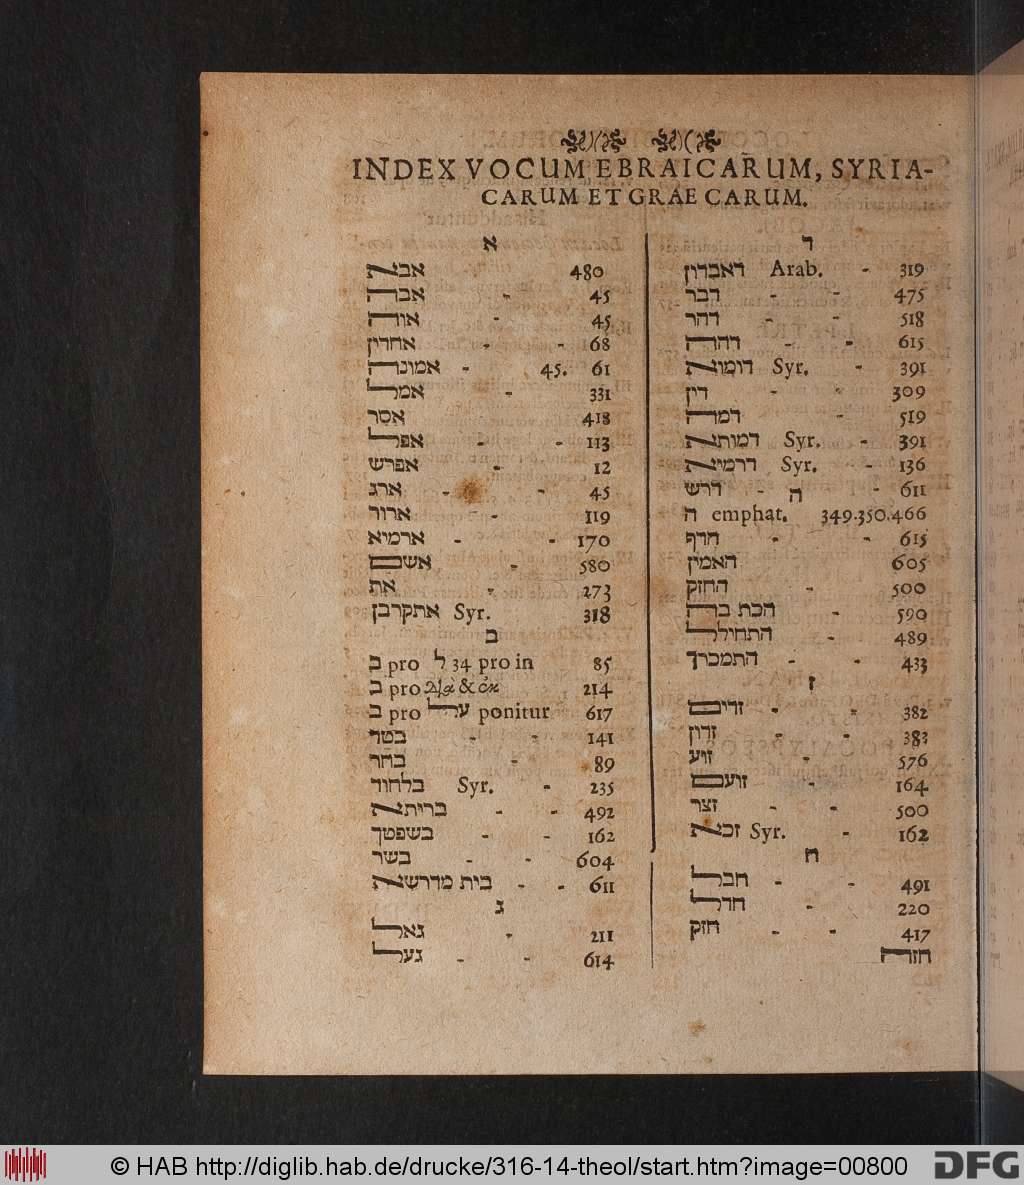 INDEX VOCUM EBRAICARUM, SYRIA-
CARUM ET GRAECARUM.
א
אבא 480
אבה - 45
אוה - 45
אחדין - - 68
אמונה - 45. 61
אמל - 331
אסר 418
אפל - - 113
אפרש - 12
ארג - - 45
ארור - - 119
ארמיא - - 170
אשם - 580
את - 273
אתקרבן Syr. 318
ב
ב pro ל 34 pro in 85
ב pro διὰ & ἐκ 214
ב pro על ponitur 617
בטד - - 141
בחר - 89
בלחוד Syr. - 235
בריתא - - 492
בשפטך - - 162
בשר - - 604
בית מדרשא - - 611
ג
גאל - 211
געל - - 614
ד
דאברון Arab. - 319
דבר - - 475
דהר - - 518
דהה - - 615
דומוא Syr. - 391
דין - - 309
דמה - 519
דמותא Syr. - 391
דרמיא Syr. - 136
דרש - - 611
ה
ה emphat. 349.350.466
הדף - - 615
האמין 605
החזק - 500
הכת ברה - 590
התחילל - 489
התמכרך - - 433
ז
זדים - - 382
זדון - - 383
זוע - 576
זועם - 164
זצר - - 500
זכא Syr. - 162
ח
חבל - - 491
חדל - 220
חזק - - 417
חזה
© HAB http://diglib.hab.de/drucke/316-14-theol/start.htm?image=00800
DFG